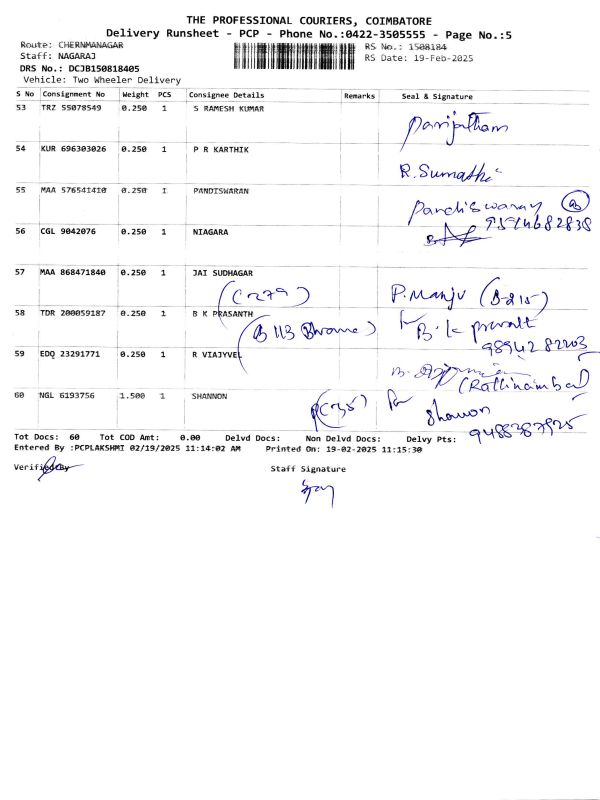 THE PROFESSIONAL COURIERS, COIMBATORE
Delivery Runsheet - PCP - Phone No.:0422-3505555 - Page No.:5
Route: CHERNMANAGAR RS No.: 1508184
Staff: NAGARAJ RS Date: 19-Feb-2025
DRS No.: DCJB150818405
Vehicle: Two Wheeler Delivery
S No Consignment No Weight PCS Consignee Details Remarks Seal & Signature
53 TRZ 55078549 0.250 1 S RAMESH KUMAR
Parijatham
54 KUR 696303026 0.250 1 P R KARTHIK
R.Sumathi
55 MAA 576541410 0.250 1 PANDISWARAN
Pandiswaran
56 CGL 9042076 0.250 1 NIAGARA
57 MAA 868471840 0.250 1 JAI SUDHAGAR
(C-279) P.Manju (B-215)
58 TDR 200059187 0.250 1 B K PRASANTH
(B 113 ) B.K
9894282203
59 EDQ 23291771 0.250 1 R VIAJYVEL
60 NGL 6193756 1.500 1 SHANNON
For
9488387925
Tot Docs: 60 Tot COD Amt: 0.00 Delvd Docs: Non Delvd Docs: Delvy Pts:
Entered By :PCPLAKSHMI 02/19/2025 11:14:02 AM Printed On: 19-02-2025 11:15:30
Verified By Staff Signature